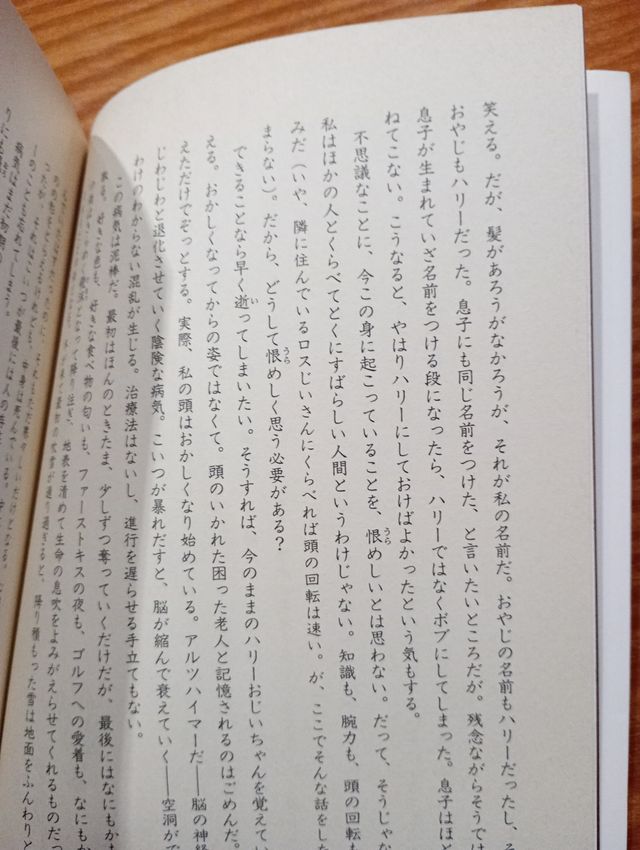 笑える。だが、髪があろうがなかろうが、それが私の名前だ。おやじの名前もハリーだったし、そ
おやじもハリーだった。息子にも同じ名前をつけた、と言いたいところだが。残念ながらそうでは
息子が生まれていざ名前をつける段になったら、ハリーではなくボブにしてしまった。息子はほと
ねてこない。こうなると、やはりハリーにしておけばよかったという気もする。
不思議なことに、今この身に起こっていることを、恨めしいとは思わない。だって、そうじゃな
私はほかの人とくらべてとくにすばらしい人間というわけじゃない。知識も、腕力も、頭の回転も
みだ（いや、隣に住んでいるロスじいさんにくらべれば頭の回転は速い。が、ここでそんな話をした
まらない）。だから、どうして恨めしく思う必要がある？
できることなら早く逝ってしまいたい。そうすれば、今のままのハリーおじいちゃんを覚えてい
える。おかしくなってからの姿ではなくて。頭のいかれた困った老人と記憶されるのはごめんだ。
えただけでぞっとする。実際、私の頭はおかしくなり始めている。アルツハイマーだ――脳の神経
じわじわと退化させていく陰険な病気。こいつが暴れだすと、脳が縮んで衰えていく――空洞がで
わけのわからない混乱が生じる。治療法はないし、進行を遅らせる手立てもない。
この病気は泥棒だ。最初はほんのときたま、少しずつ奪っていくだけだが、最後にはなにもかも
好きな色も、好きな食べ物の匂いも、ファーストキスの夜も、ゴルフへの愛着も、なにもか
となって降り注ぎ、地表を清めて生命の息吹をよみがえらせてくれるものだっ
が通り過ぎると、降り積もった雪は地面をふんわりと